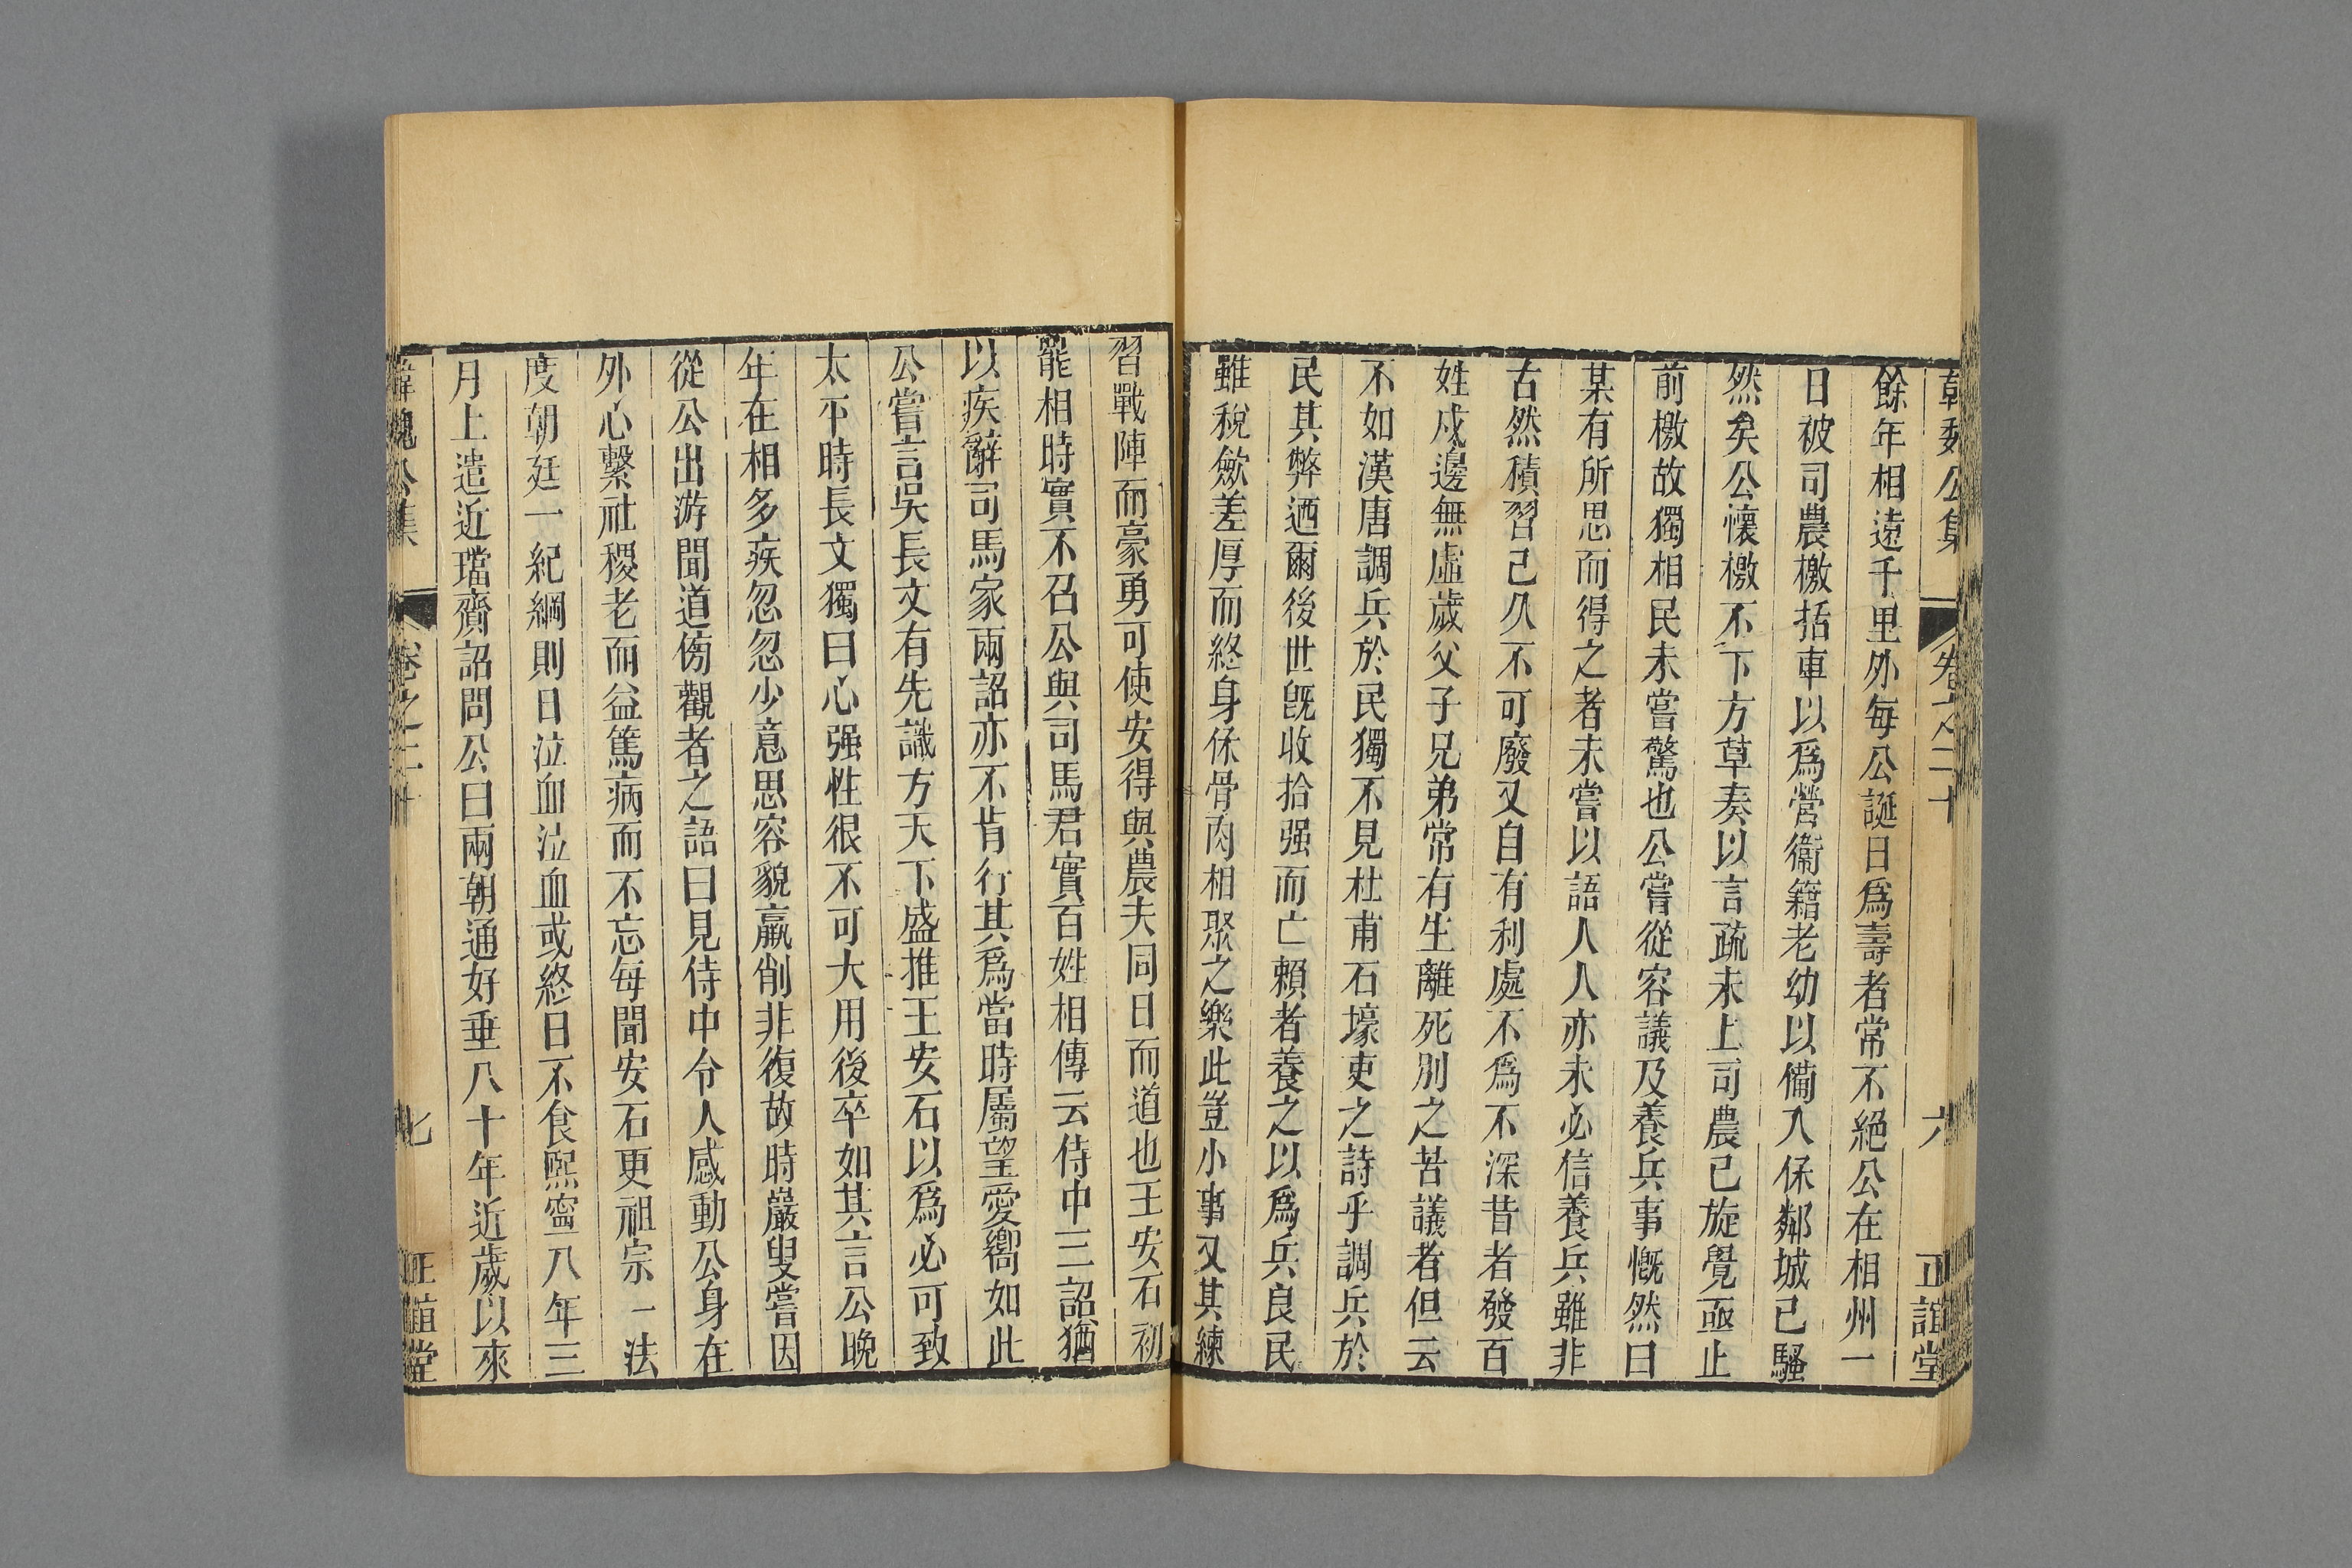 韓魏公集 卷之二十 六 正誼堂
餘年相遠千里外每公誕日爲壽者常不絕公在相州一
日被司農檄括車以爲營衞籍老幼以備入保鄰城已騷
然矣公懷檄不下方草奏以言疏未上司農已旋覺亟止
前檄故獨相民未嘗驚也公嘗從容議及養兵事慨然曰
某有所思而得之者未嘗以語人人亦未必信養兵雖非
古然積習已久不可廢又自有利處不爲不深昔者發百
姓戍邊無虛歲父子兄弟常有生離死別之苦議者但云
不如漢唐調兵於民獨不見杜甫石壕吏之詩乎調兵於
民其弊迺爾後世旣收拾强而亡賴者養之以爲兵良民
雖稅斂差厚而終身保骨肉相聚之樂此豈小事又其練
習戰陣而豪勇可使安得與農夫同日而道也王安石初
罷相時實不召公與司馬君實百姓相傳云侍中三詔猶
以疾辭司馬家兩詔亦不肯行其爲當時屬望愛嚮如此
公嘗言吳長文有先識方天下盛推王安石以爲必可致
太平時長文獨曰心强性很不可大用後卒如其言公晚
年在相多疾忽忽少意思容貌羸削非復故時嚴叟嘗因
從公出游聞道傍觀者之語曰見侍中令人感動公身在
外心繫社稷老而益篤病而不忘每聞安石更祖宗一法
度朝廷一紀綱則日泣血泣血或終日不食熙寧八年三
月上遣近璫齎詔問公曰兩朝通好垂八十年近歲以來
韓魏公集 卷之二十 七 正誼堂